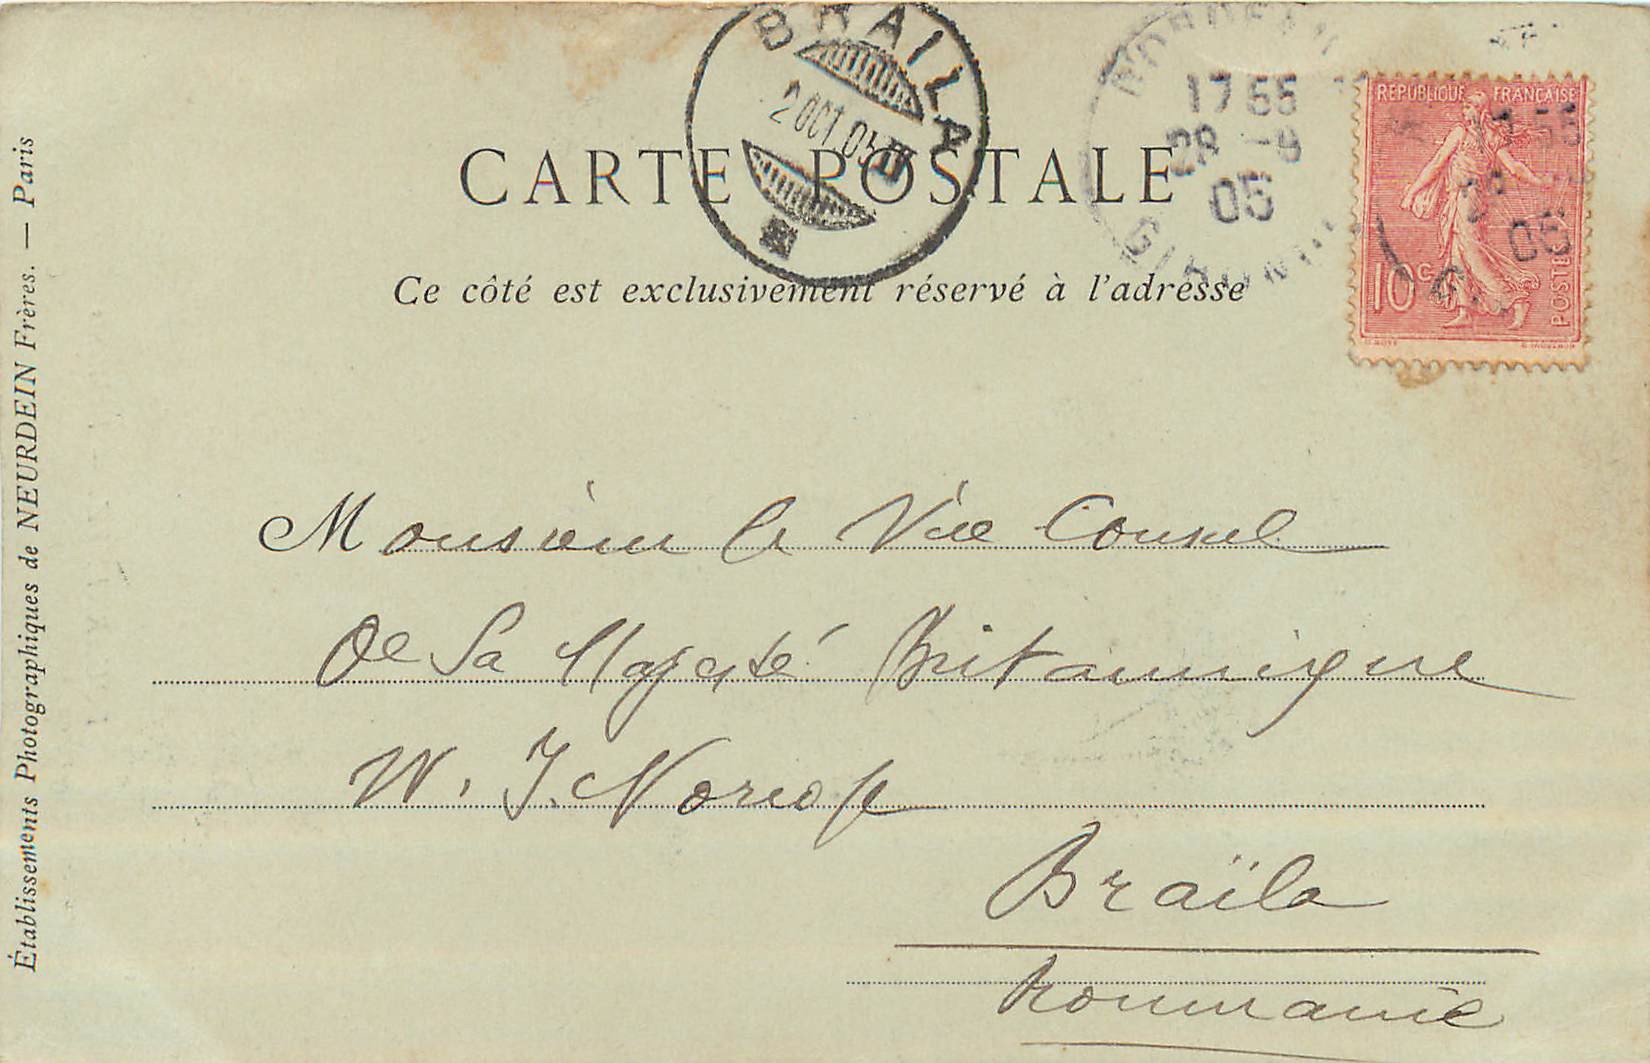 BRAILA
2 OCT 05
BORDEAUX
17 55
28 -9
05
GIRONDE
REPUBLIQUE FRANÇAISE
10c
POSTES
17 55
05
CARTE POSTALE
Ce côté est exclusivement réservé à l'adresse
Monsieur le Vice Consul
De Sa Majesté Britannique
W. J. Norcop
Braïla
Roumanie
Établissements Photographiques de NEURDEIN Frères. — Paris